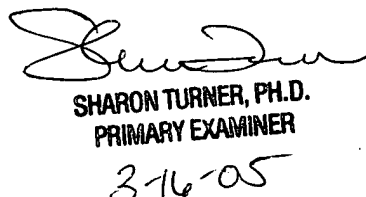 SHARON TURNER, PH.D.
PRIMARY EXAMINER
3-16-05